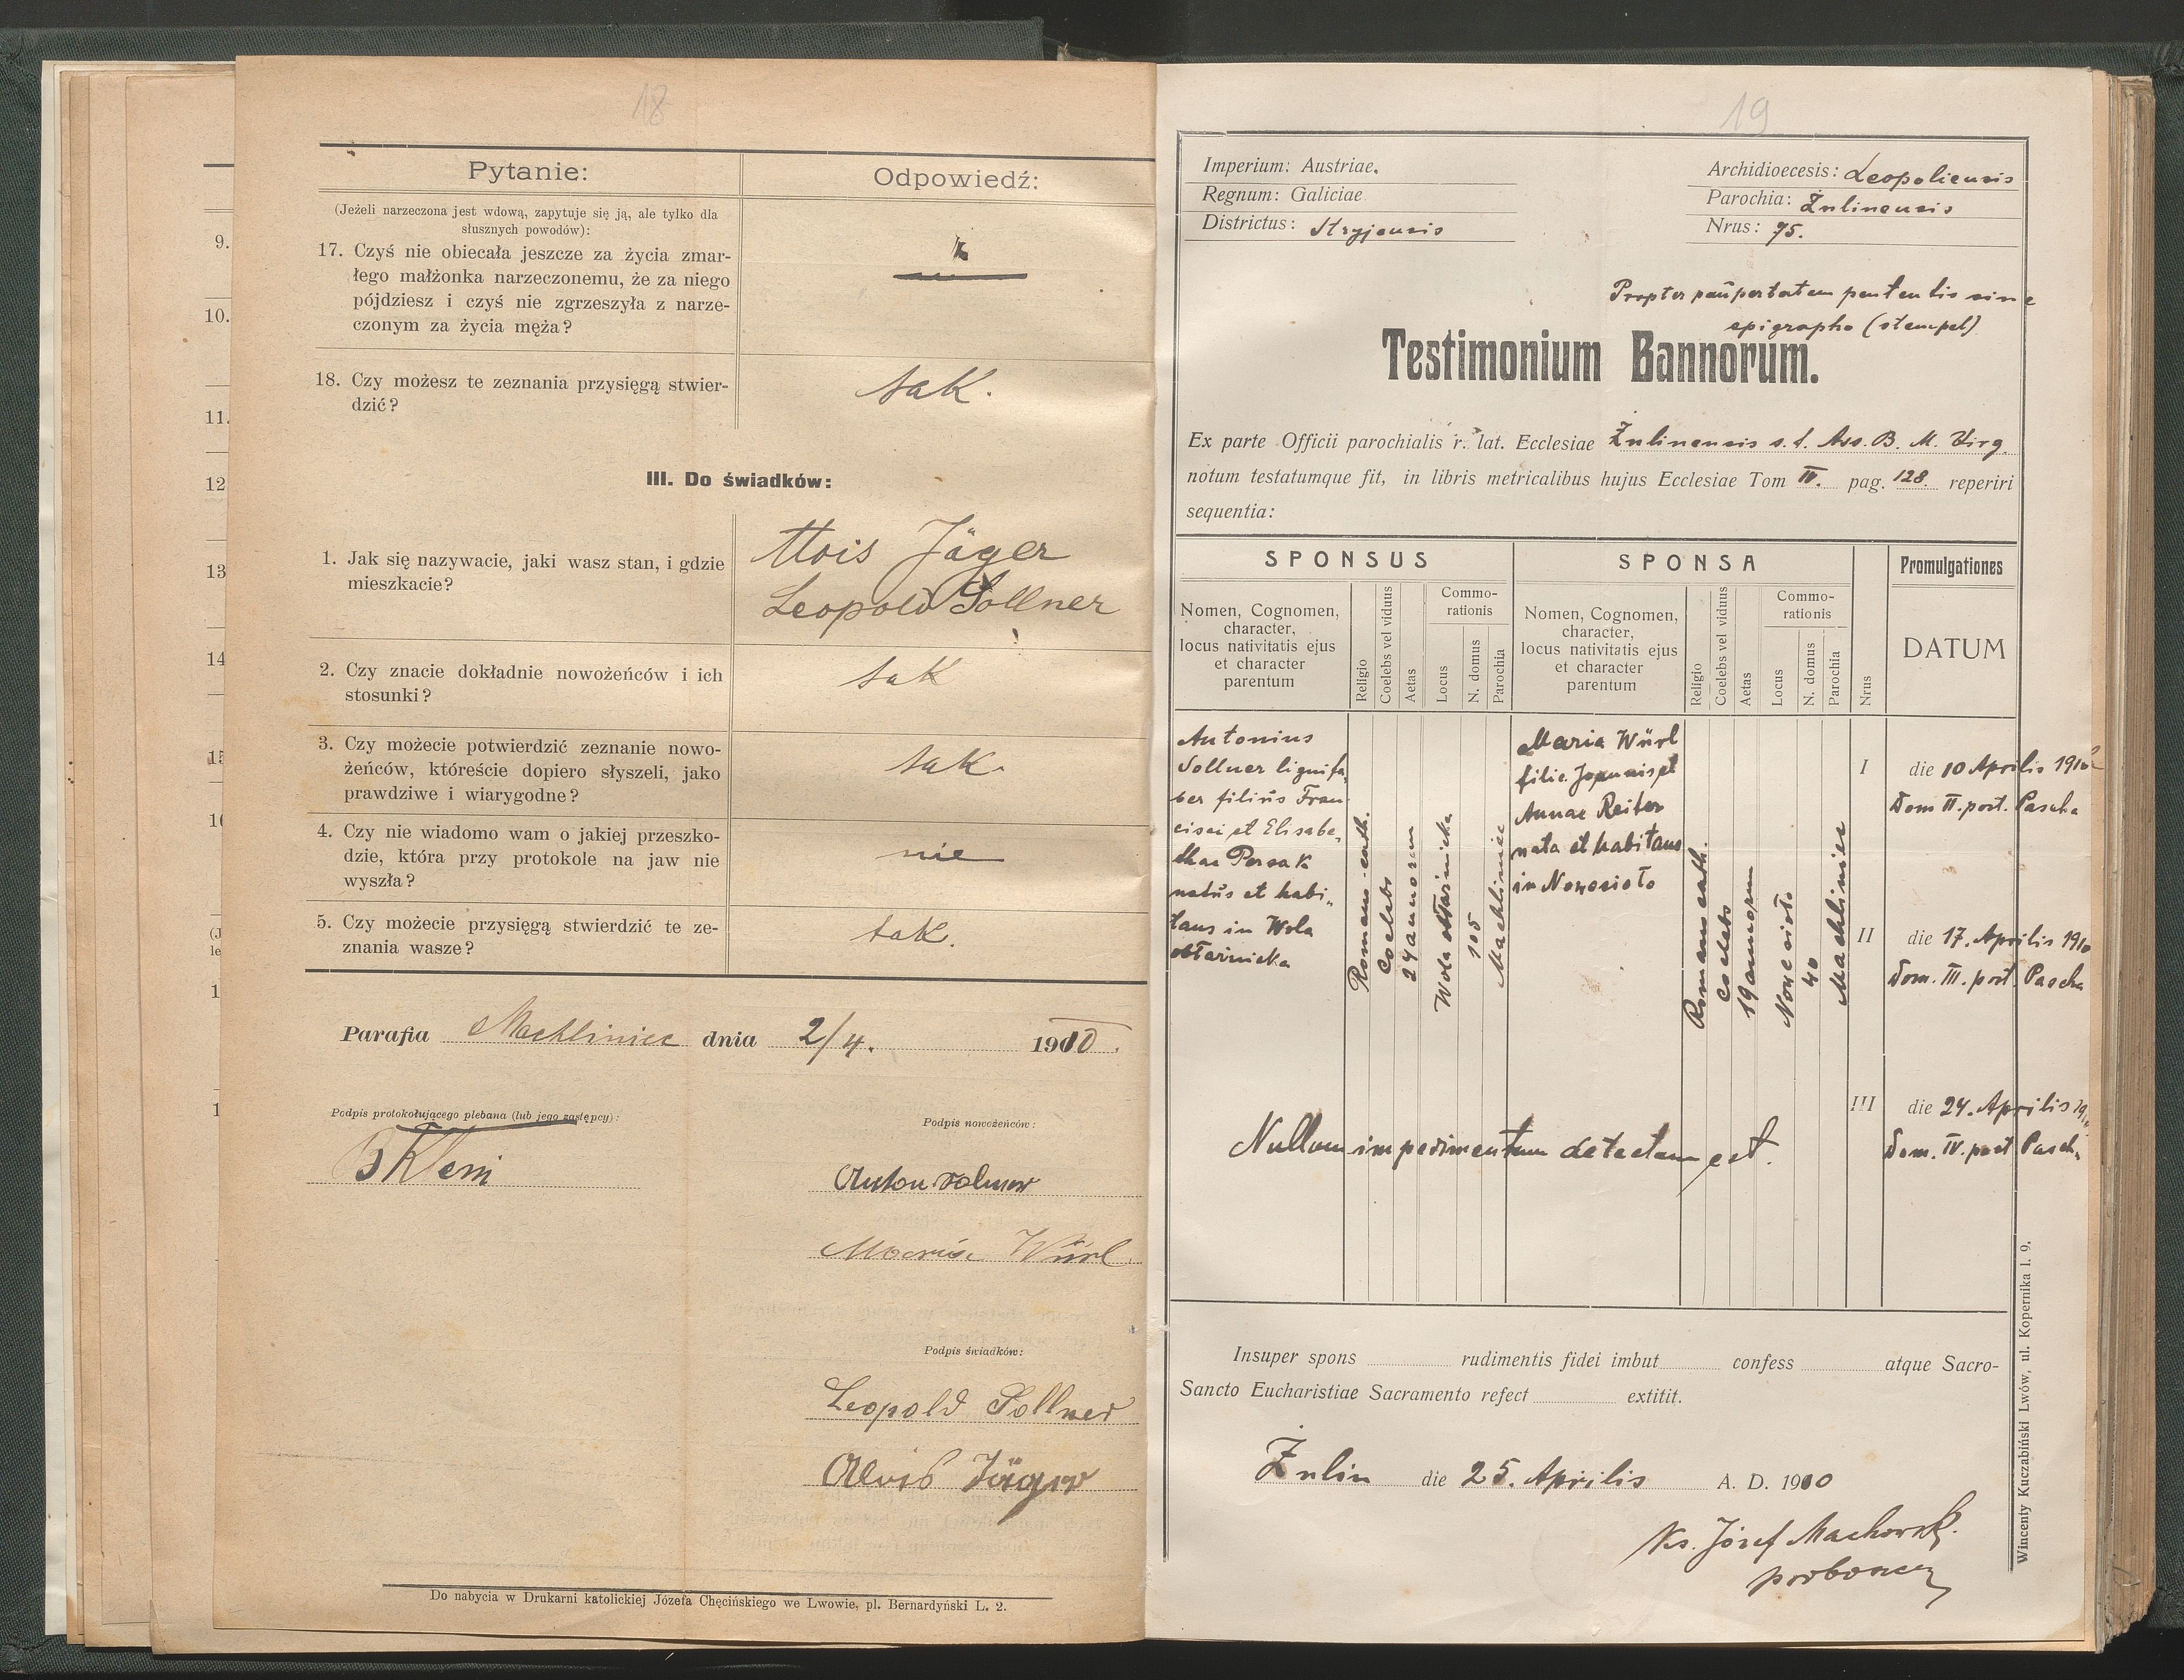 18
Pytanie:
Odpowiedź:
(Jeżeli narzeczona jest wdową, zapytuje się ją, ale tylko dla
słusznych powodów):
17. Czyś nie obiecała jeszcze za życia zmar-
łego małżonka narzeczonemu, że za niego
pójdziesz i czyś nie zgrzeszyła z narze-
czonym za życia męża?
18. Czy możesz te zeznania przysięgą stwier-
dzić?
tak.
III. Do świadków:
1. Jak się nazywacie, jaki wasz stan, i gdzie
mieszkacie?
Alois Jäger
Leopold Sollner
2. Czy znacie dokładnie nowożeńców i ich
stosunki?
tak
3. Czy możecie potwierdzić zeznanie nowo-
żeńców, któreście dopiero słyszeli, jako
prawdziwe i wiarygodne?
tak.
4. Czy nie wiadomo wam o jakiej przeszko-
dzie, która przy protokole na jaw nie
wyszła?
nie
5. Czy możecie przysięgą stwierdzić te ze-
znania wasze?
tak.
Parafia Machliniec dnia 2/4. 1910.
Podpis protokołującego plebana (lub jego zastępcy):
Podpis nowożeńców:
Anton Solner
Maria Würl
Podpis świadków:
Leopold Sollner
Alois Jäger
Do nabycia w Drukarni katolickiej Józefa Chęcińskiego we Lwowie, pl. Bernardyński L. 2.
9.
10.
11.
12
13
14
15
16
1
1
19
Imperium: Austriae.
Regnum: Galiciae
Districtus: Stryjensis
Archidioecesis: Leopoliensis
Parochia: Żulinensis
Nrus: 75.
Propter paupertatem petentis sine
epigrapho (stempel)
Testimonium Bannorum.
Ex parte Officii parochialis r. lat. Ecclesiae Żulinensis s. t. Ass. B. M. Virg.
notum testatumque fit, in libris metricalibus hujus Ecclesiae Tom IV. pag. 128. reperiri
sequentia:
SPONSUS
SPONSA
Promulgationes
Nomen, Cognomen,
character,
locus nativitatis ejus
et character
parentum
Religio
Coelebs vel viduus
Aetas
Commo-
rationis
Locus
N. domus
Parochia
Nomen, Cognomen,
character,
locus nativitatis ejus
et character
parentum
Religio
Coelebs vel viduus
Aetas
Commo-
rationis
Locus
N. domus
Parochia
Nrus
DATUM
Antonius
Sollner lignifa-
ber filius Fran-
cisci et Elisabe-
thae Persak
natus et habi-
tans in Wola
obłaznicka
Romano-cath.
Coelebs
24 annorum
Wola obłaznicka
105
Machliniec
Maria Würl
filia Joannis et
Annae Reiter
nata et habitans
in Nowosioło
Romano cath.
Coelebs
19 annorum
Nowesioło
40
Machliniec
I
die 10 Aprilis 1910
Dom II. post. Pascha
II
die 17. Aprilis 1910
Dom. III. post. Pascha
III
die 24. Aprilis 19
Dom. IV. post Pasch.
Nullum impedimentum detectum est.
Insuper spons rudimentis fidei imbut confess atque Sacro-
Sancto Eucharistiae Sacramento refect extitit.
Żulin die 25. Aprilis A. D. 1910
Ks. Józef Machowski
proboszcz
Wincenty Kuczabiński Lwów, ul. Kopernika l. 9.